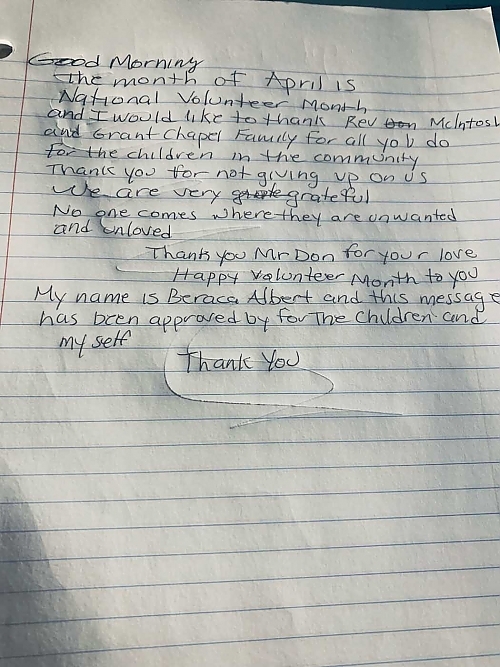 Good Morning
The month of April is
National Volunteer Month
and I would like to thank Rev Don McIntosh
and Grant Chapel Family for all you do
for the children in the community
Thank you for not giving up on us
We are very grateful
No one comes where they are unwanted
and unloved
Thank you Mr Don for your love
Happy Volunteer Month to you
My name is Beraca Albert and this message
has been approved by for The Children and
my self
Thank You